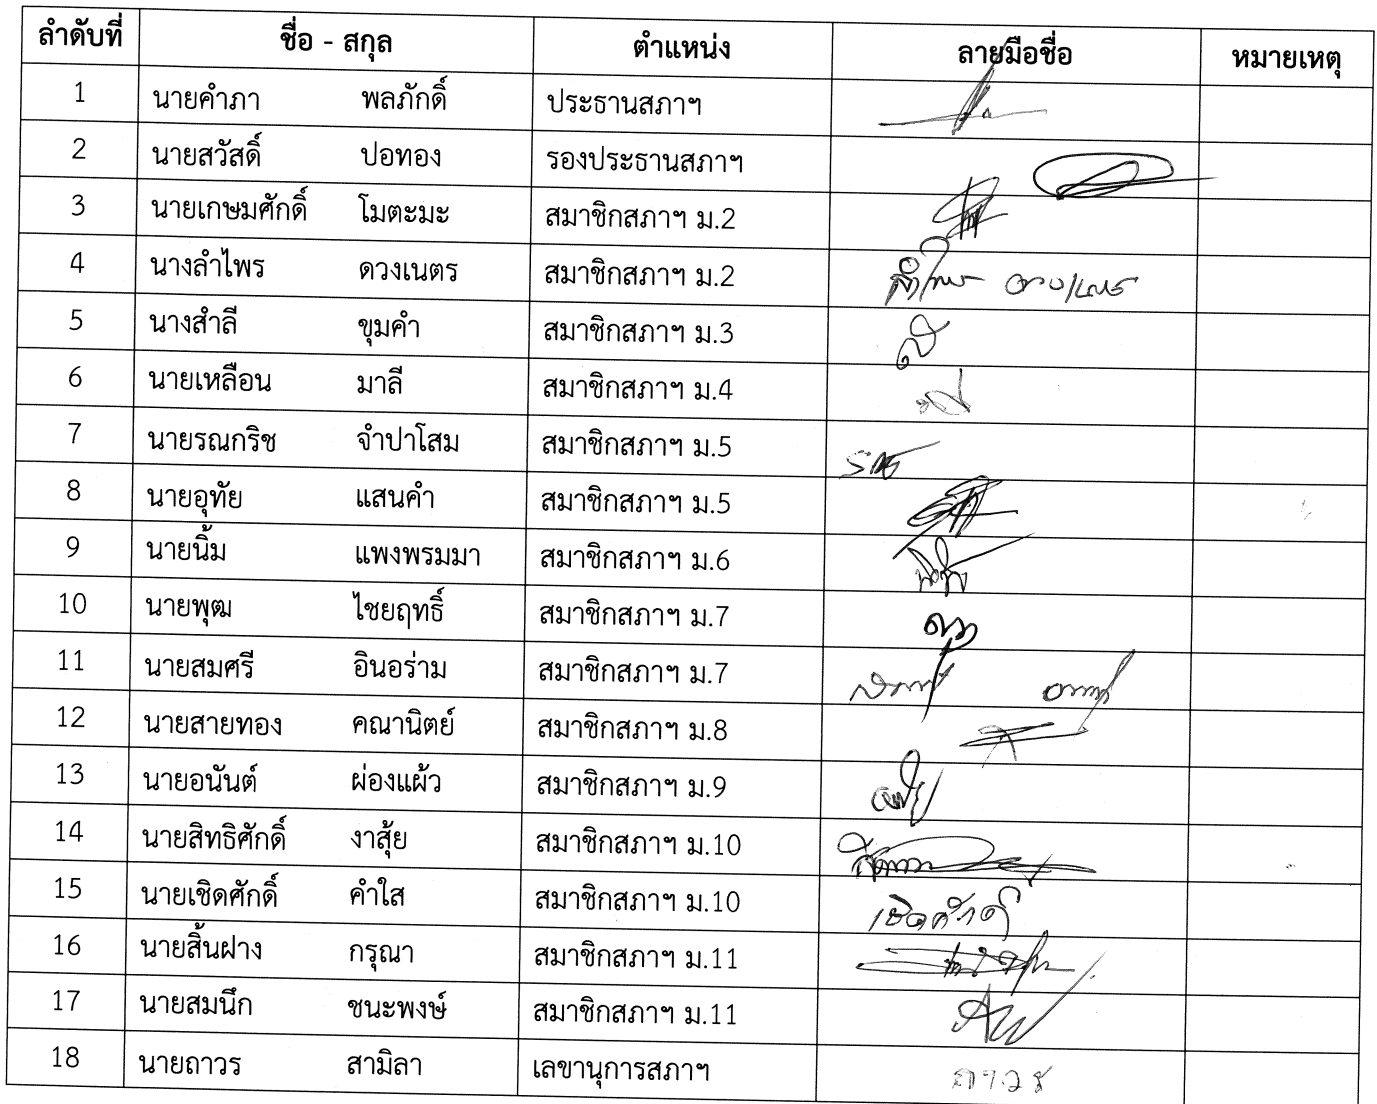 ลำดับที่ ชื่อ - สกุล ตำแหน่ง ลายมือชื่อ หมายเหตุ
1 นายคำภา พลภักดิ์ ประธานสภาฯ
2 นายสวัสดิ์ ปอทอง รองประธานสภาฯ
3 นายเกษมศักดิ์ โมตะมะ สมาชิกสภาฯ ม.2
4 นางลำไพร ดวงเนตร สมาชิกสภาฯ ม.2 ลำไพร ดวงเนตร
5 นางสำลี ขุมคำ สมาชิกสภาฯ ม.3
6 นายเหลือน มาลี สมาชิกสภาฯ ม.4
7 นายรณกริช จำปาโสม สมาชิกสภาฯ ม.5
8 นายอุทัย แสนคำ สมาชิกสภาฯ ม.5
9 นายนิ้ม แพงพรมมา สมาชิกสภาฯ ม.6
10 นายพุฒ ไชยฤทธิ์ สมาชิกสภาฯ ม.7
11 นายสมศรี อินอร่าม สมาชิกสภาฯ ม.7
12 นายสายทอง คณานิตย์ สมาชิกสภาฯ ม.8
13 นายอนันต์ ผ่องแผ้ว สมาชิกสภาฯ ม.9
14 นายสิทธิศักดิ์ งาสุ้ย สมาชิกสภาฯ ม.10
15 นายเชิดศักดิ์ คำใส สมาชิกสภาฯ ม.10 เชิดศักดิ์
16 นายสิ้นฝาง กรุณา สมาชิกสภาฯ ม.11
17 นายสมนึก ชนะพงษ์ สมาชิกสภาฯ ม.11
18 นายถาวร สามิลา เลขานุการสภาฯ ถาวร